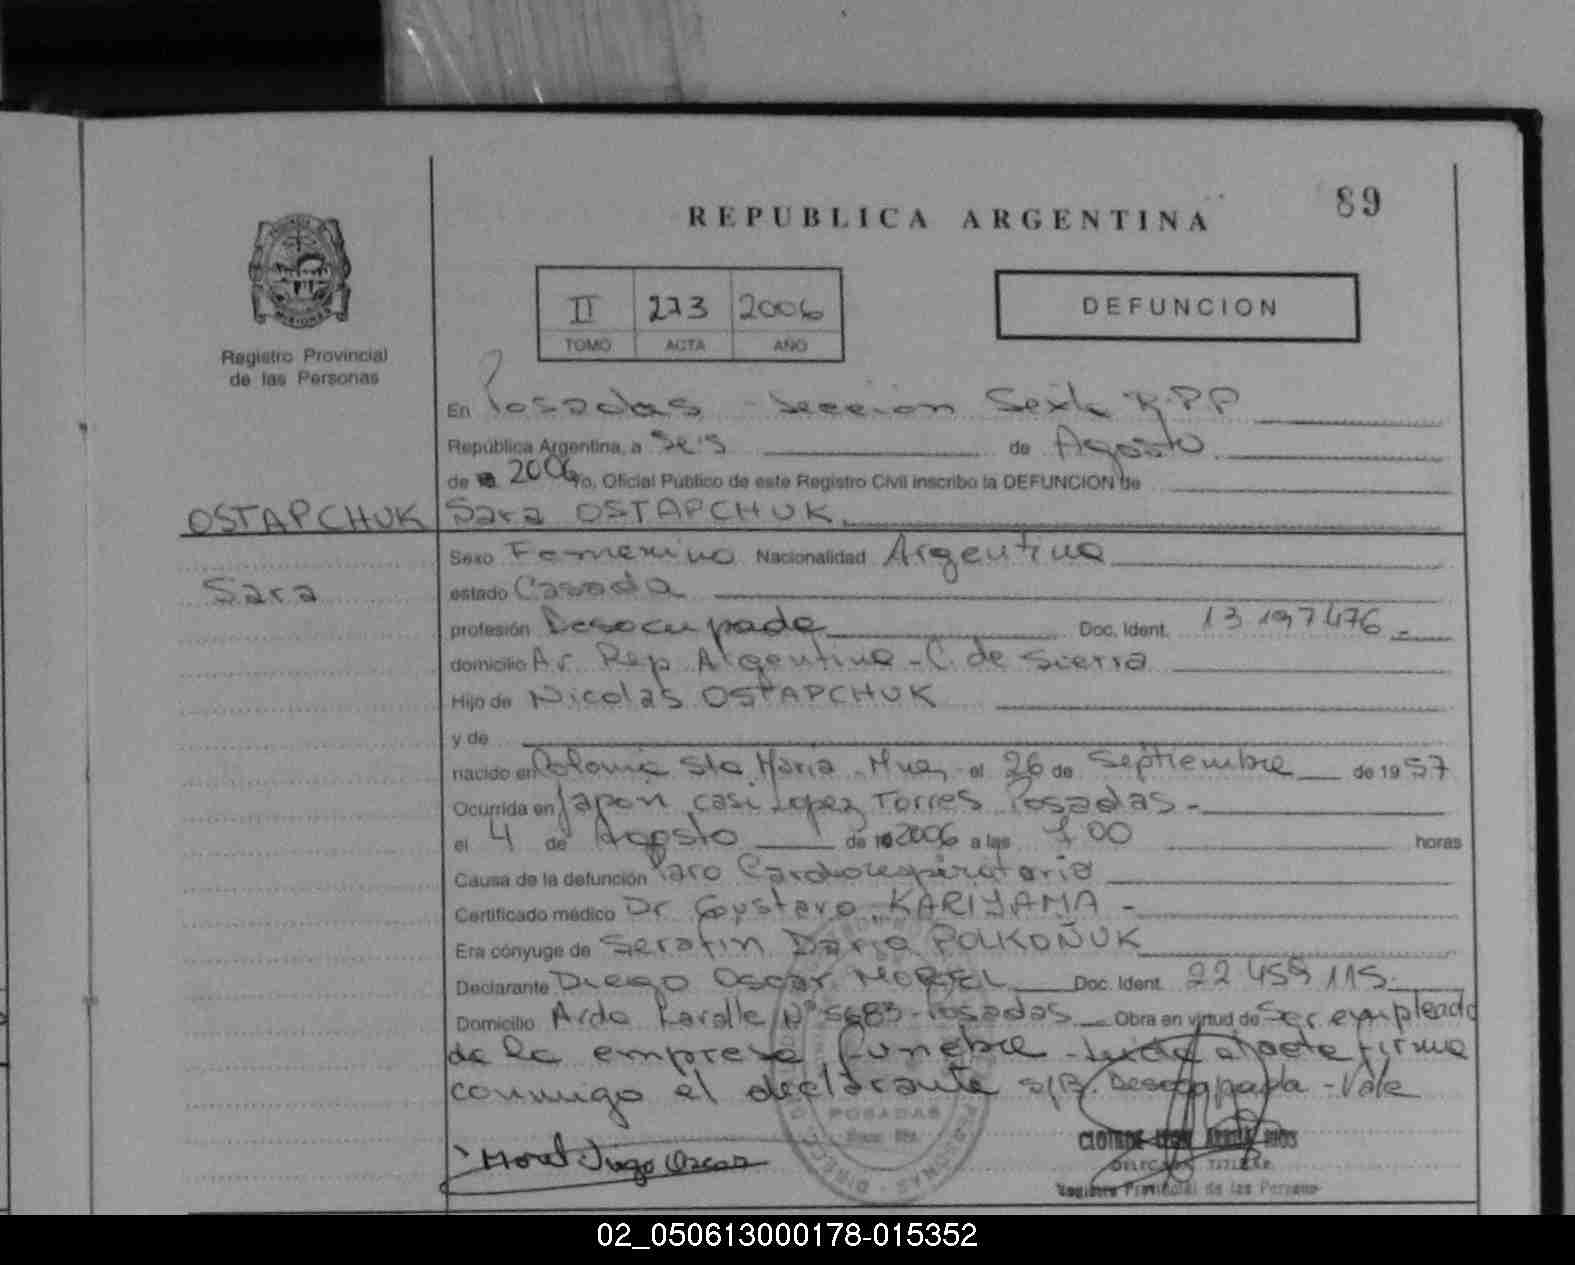 89
REPUBLICA ARGENTINA
II 273 2006
TOMO ACTA AÑO
DEFUNCION
Registro Provincial
de las Personas
En Posadas - Seccion Sexta R.P.P
República Argentina, a Seis de Agosto
de 2006 Yo, Oficial Público de este Registro Civil inscribo la DEFUNCION de
OSTAPCHUK Sara OSTAPCHUK
Sexo Femenino Nacionalidad Argentina
Sara estado Casada
profesión Desocupada Doc. Ident. 13 197 476 -
domicilio Av. Rep. Argentina - C. de Sierra
Hijo de Nicolas OSTAPCHUK
y de
nacido en Colonia Sta Maria - Mnes - el 26 de Septiembre de 1957
Ocurrida en Japon casi Lopez Torres Posadas -
el 4 de Agosto de 2006 a las 7.00 horas
Causa de la defunción Paro Cardiorespiratorio
Certificado médico Dr Gustavo KARIYAMA -
Era cónyuge de Serafin Dario POLKOÑUK
Declarante Diego Oscar MOREL Doc. Ident. 22 459 115.
Domicilio Avda Nº 5683 - Posadas - Obra en virtud de Ser empleado
de la empresa funebre - Leida el acta firma
conmigo el declarante s/B. Desocupada - Vale
Morel Diego Oscar
POSADAS
DELEGADA TITULAR
Registro Provincial de las Personas
02_050613000178-015352